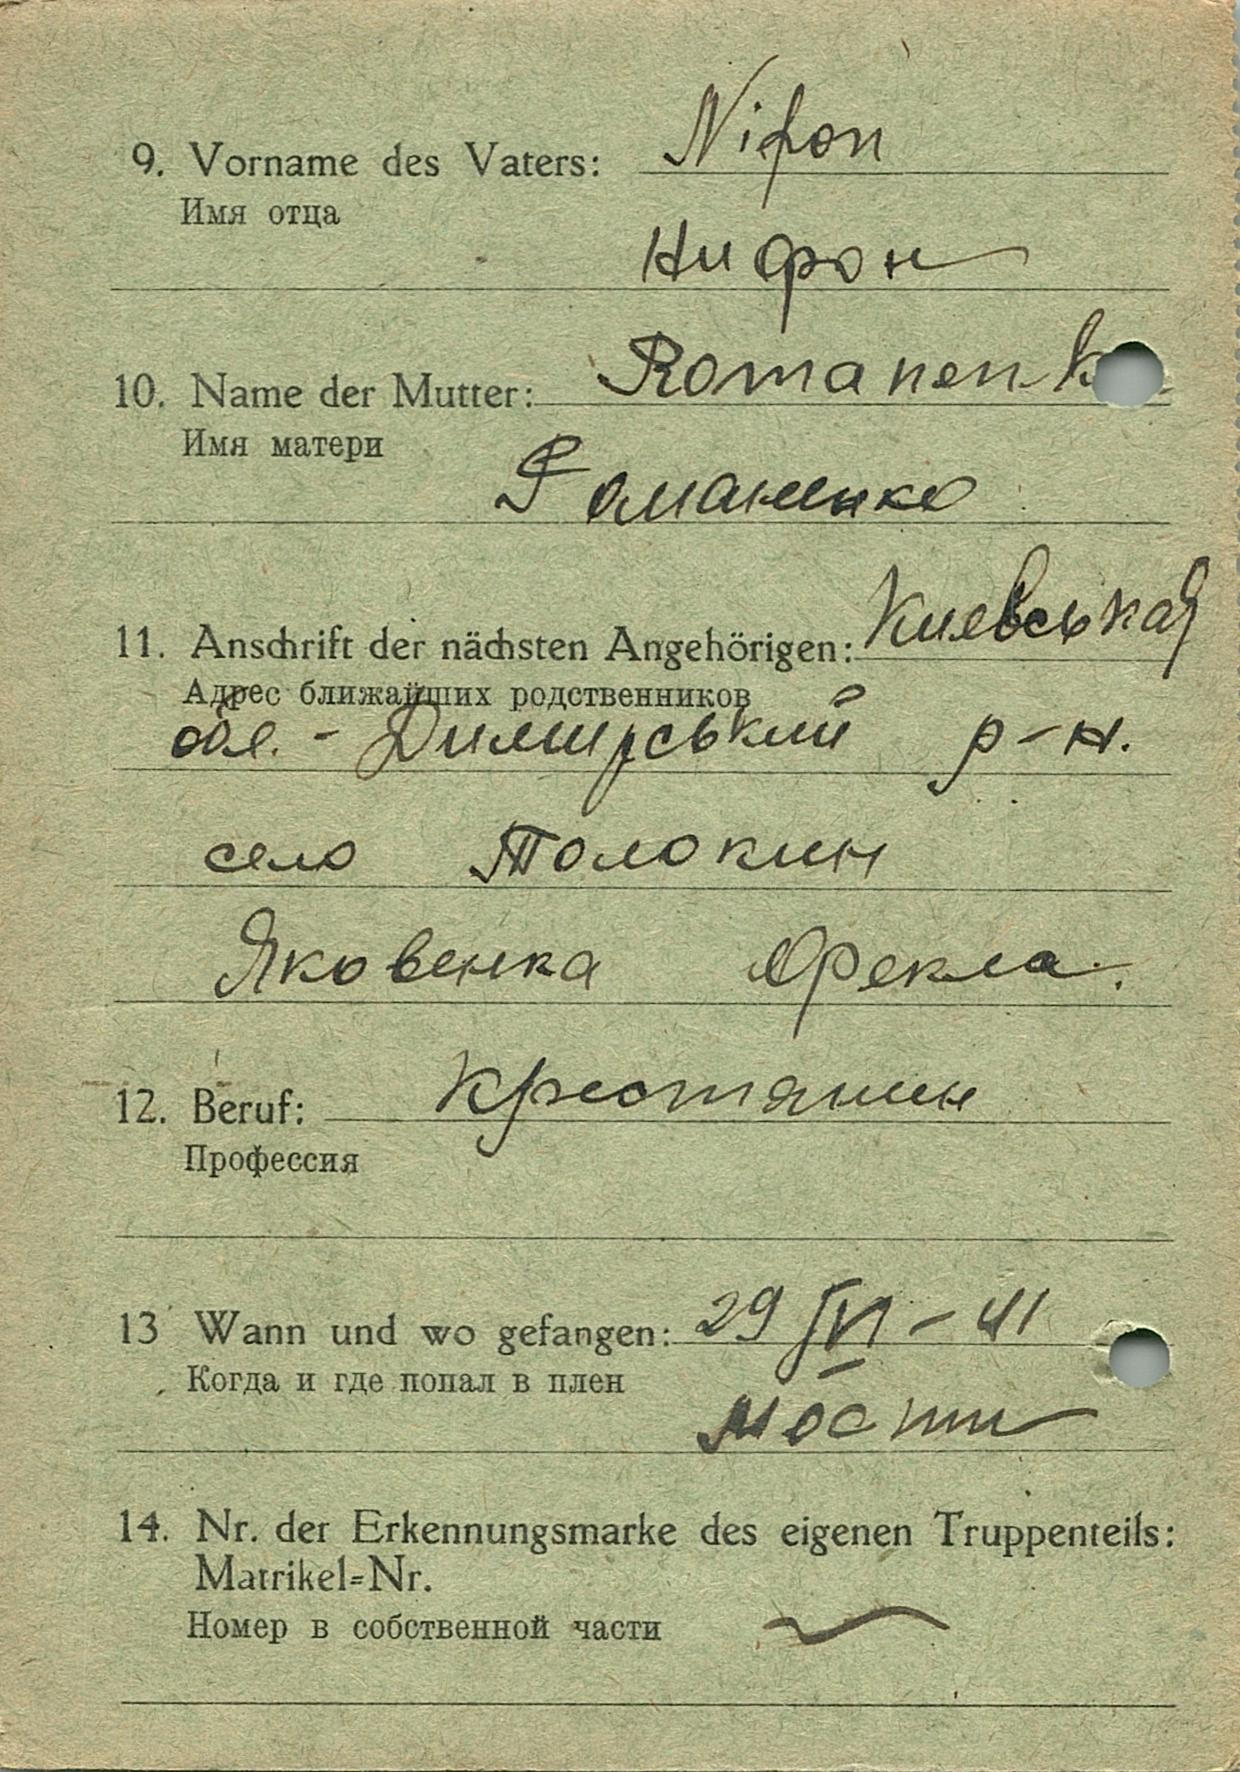 9. Vorname des Vaters: Nifon
Имя отца
Нифон
10. Name der Mutter: Romanenk
Имя матери
Романенко
11. Anschrift der nächsten Angehörigen: Киевськая
Адрес ближайших родственников
обл. - Димирський р-н.
село Толокин
Яковенка Фекла.
12. Beruf: Крестянин
Профессия
13 Wann und wo gefangen: 29 VI - 41
Когда и где попал в плен
Мости
14. Nr. der Erkennungsmarke des eigenen Truppenteils:
Matrikel=Nr.
Номер в собственной части